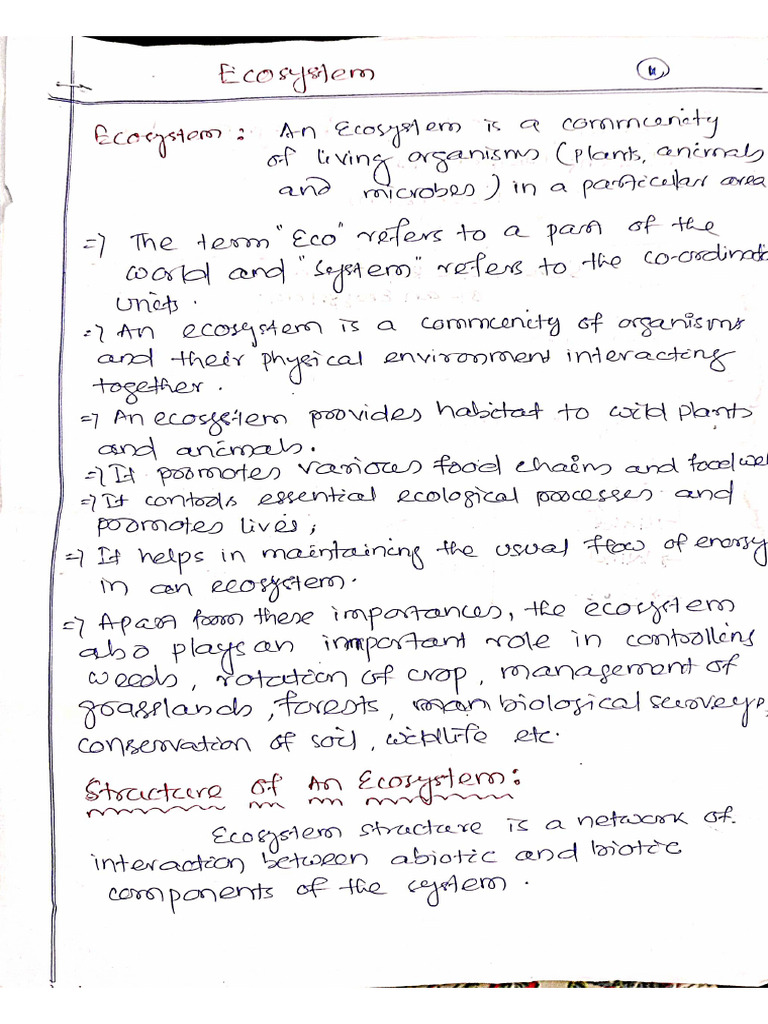 Ecosystem
Ecosystem: An Ecosystem is a community
of living organisms (plants, animals
and microbes) in a particular area
=> The term "Eco" refers to a part of the
world and "system" refers to the co-ordinati
units.
=> An ecosystem is a community of organisms
and their physical environment interacting
together.
=> An ecosystem provides habitat to wild plants
and animals.
=> It promotes various food chains and food we
=> It controls essential ecological processes and
promotes lives;
=> It helps in maintaining the usual flow of energy
in an ecosystem.
=> Apart from these importances, the ecosystem
also plays an important role in controlling
weeds, rotation of crop, management of
grasslands, forests, biological surveys,
conservation of soil, wildlife etc.
Structure of An Ecosystem:
Ecosystem structure is a network of
interaction between abiotic and biotic
components of the system.